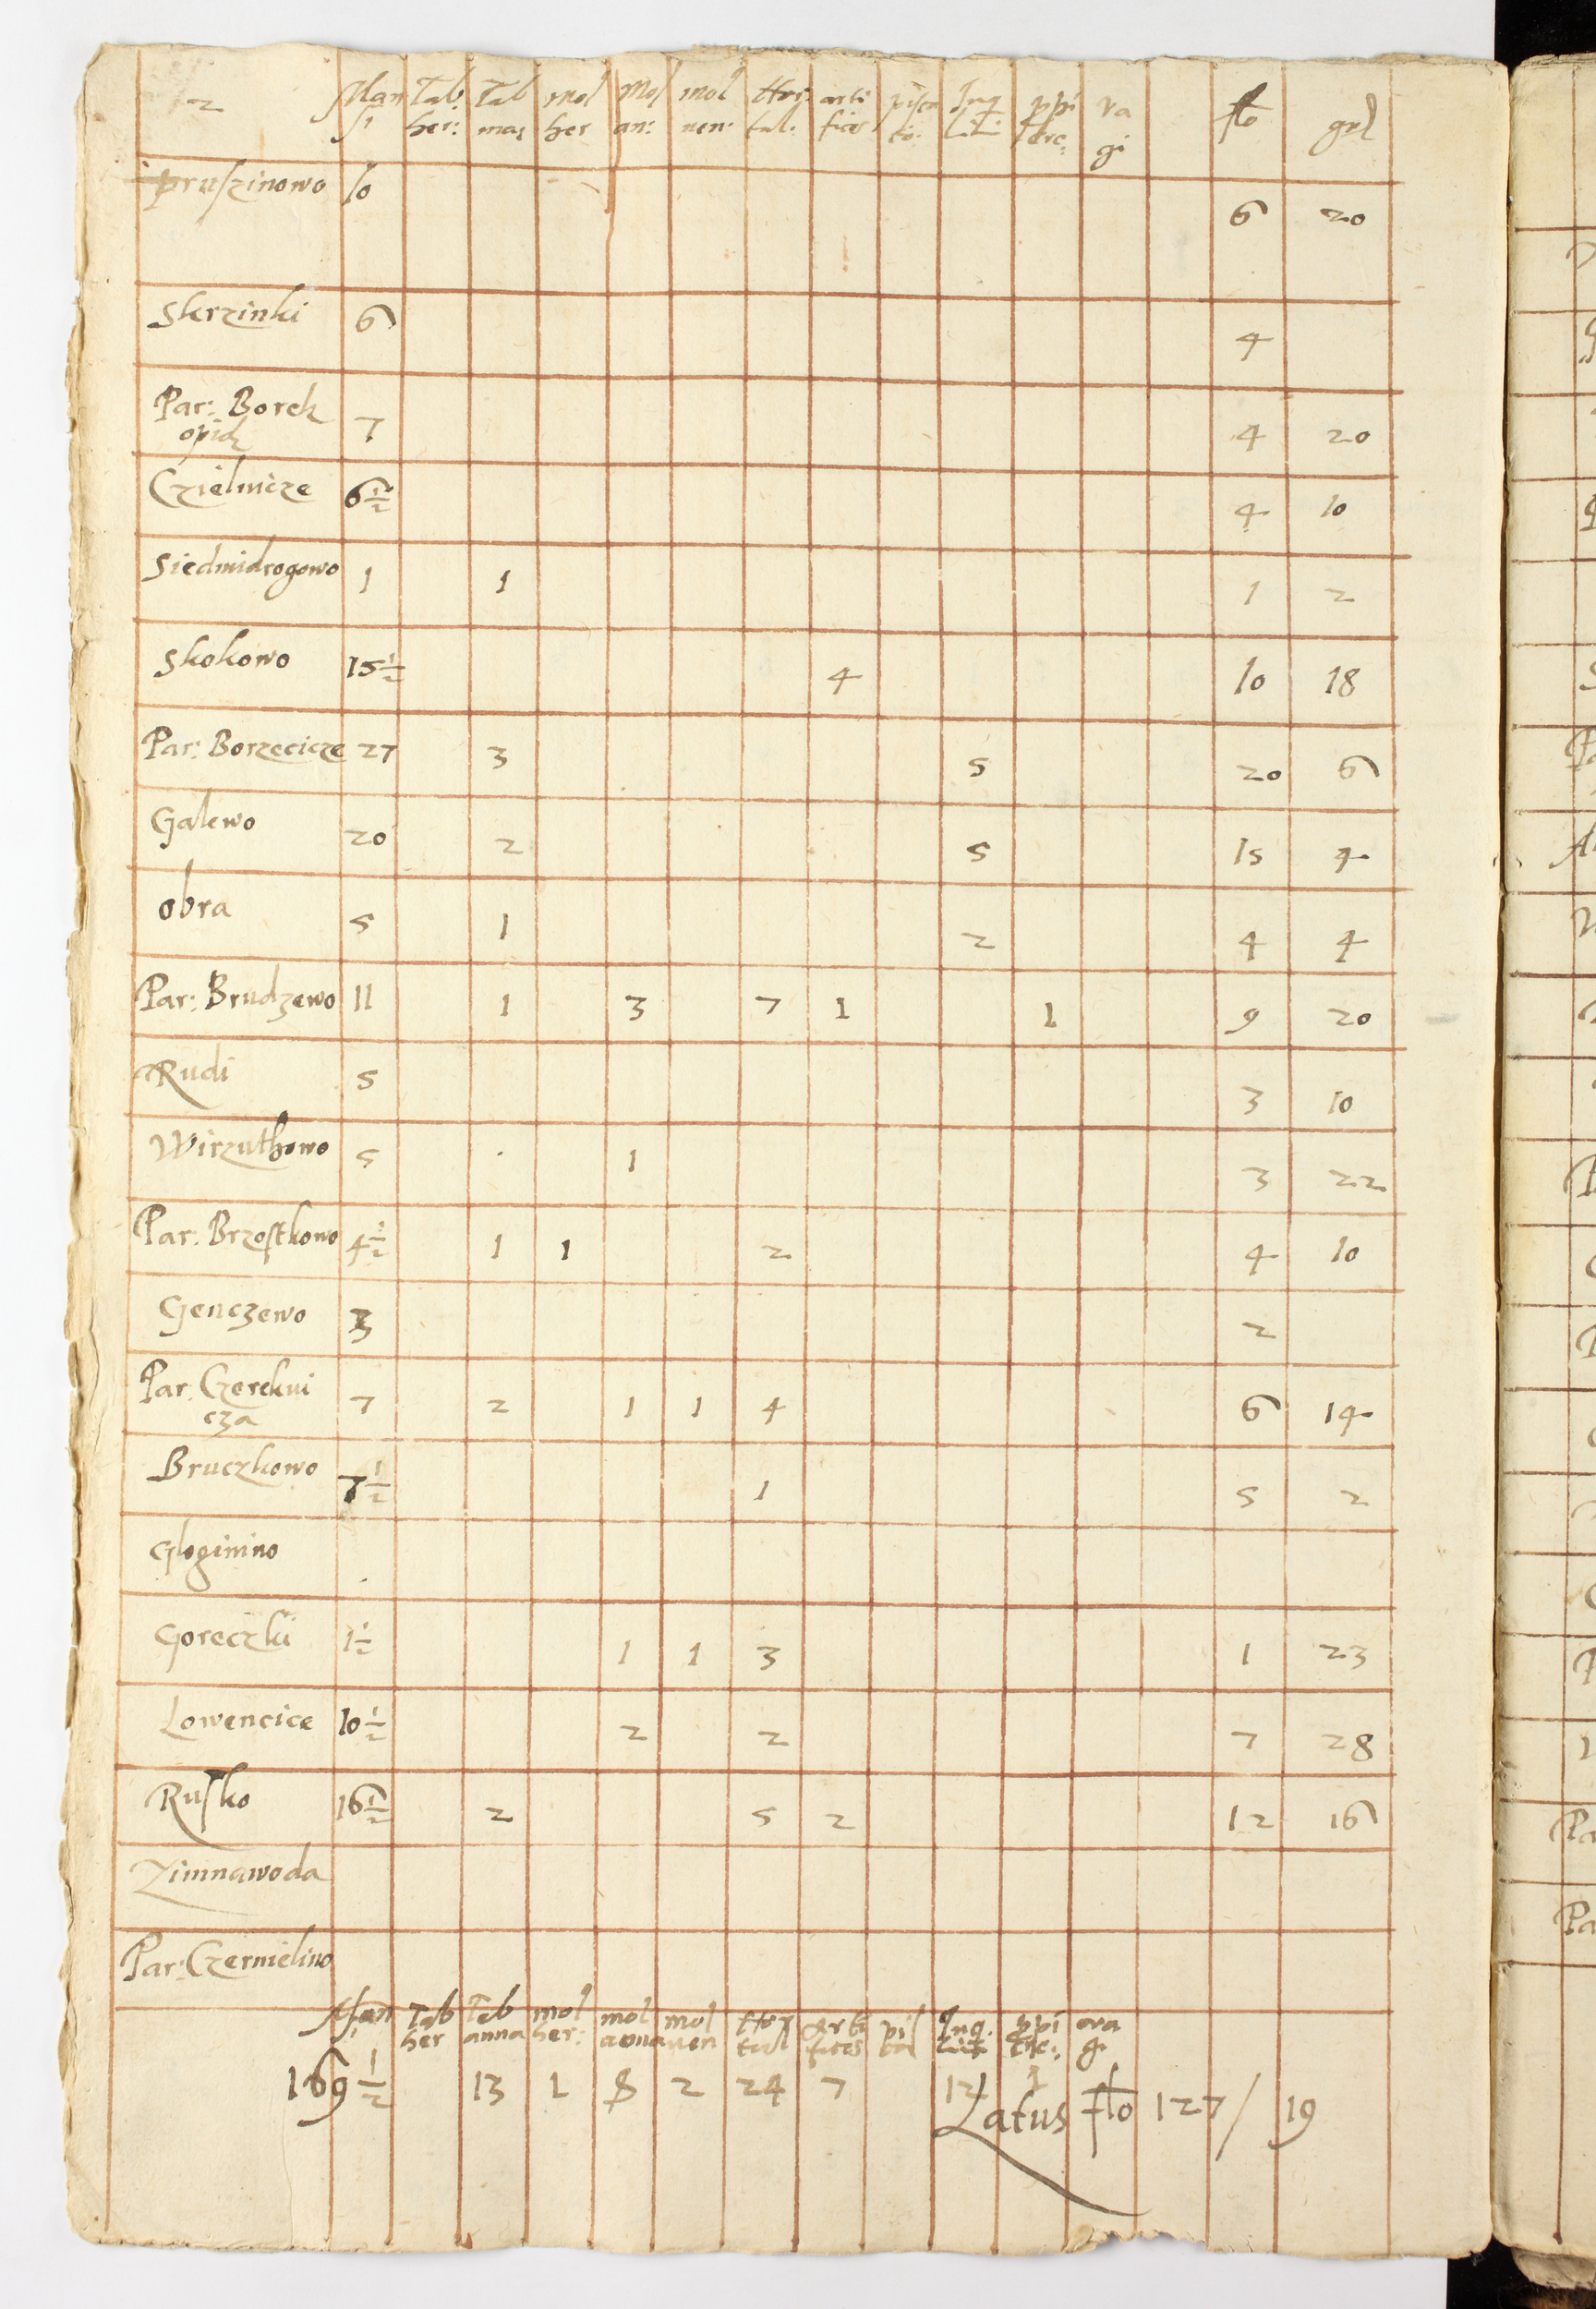 2 Man Tab: Tab mol Mol mol Hor: arti pisca Inq ppi va flo grl
si her: mag her an: nen: tul. fices to: lini: terc: gi
pruszinowo 10 6 20
Skrzinki 6 4
Par: Borek
opid 7 4 20
Czielmicze 6 1/2 4 10
Siedmidrogowo 1 1 1 2
Skokowo 15 1/2 4 10 18
Par: Borzecicze 27 3 5 20 6
Galewo 20 2 5 15 4
obra 5 1 2 4 4
Par: Brudzewo 11 1 3 7 1 1 9 20
Rudi 5 3 10
Wirzuthowo 5 1 3 22
Par: Brzostkowo 4 1/2 1 1 2 4 10
Genczewo 3 2
Par: Czerekwi
cza 7 2 1 1 4 6 14
Bruczkowo 7 1/2 1 5 2
Gloginino
Goreczki 1 1/2 1 1 3 1 23
Lowencice 10 1/2 2 2 7 28
Rusko 16 1/2 2 5 2 12 16
Zimnawoda
Par: Czermielino
Man Tab Tab mol mol mol Hor Arti pis Inq. ppi va
her anna her: anna ven tul fices lini terc: gi
169 1/2 13 1 8 2 24 7 12 1
Latus flo 127/ 19